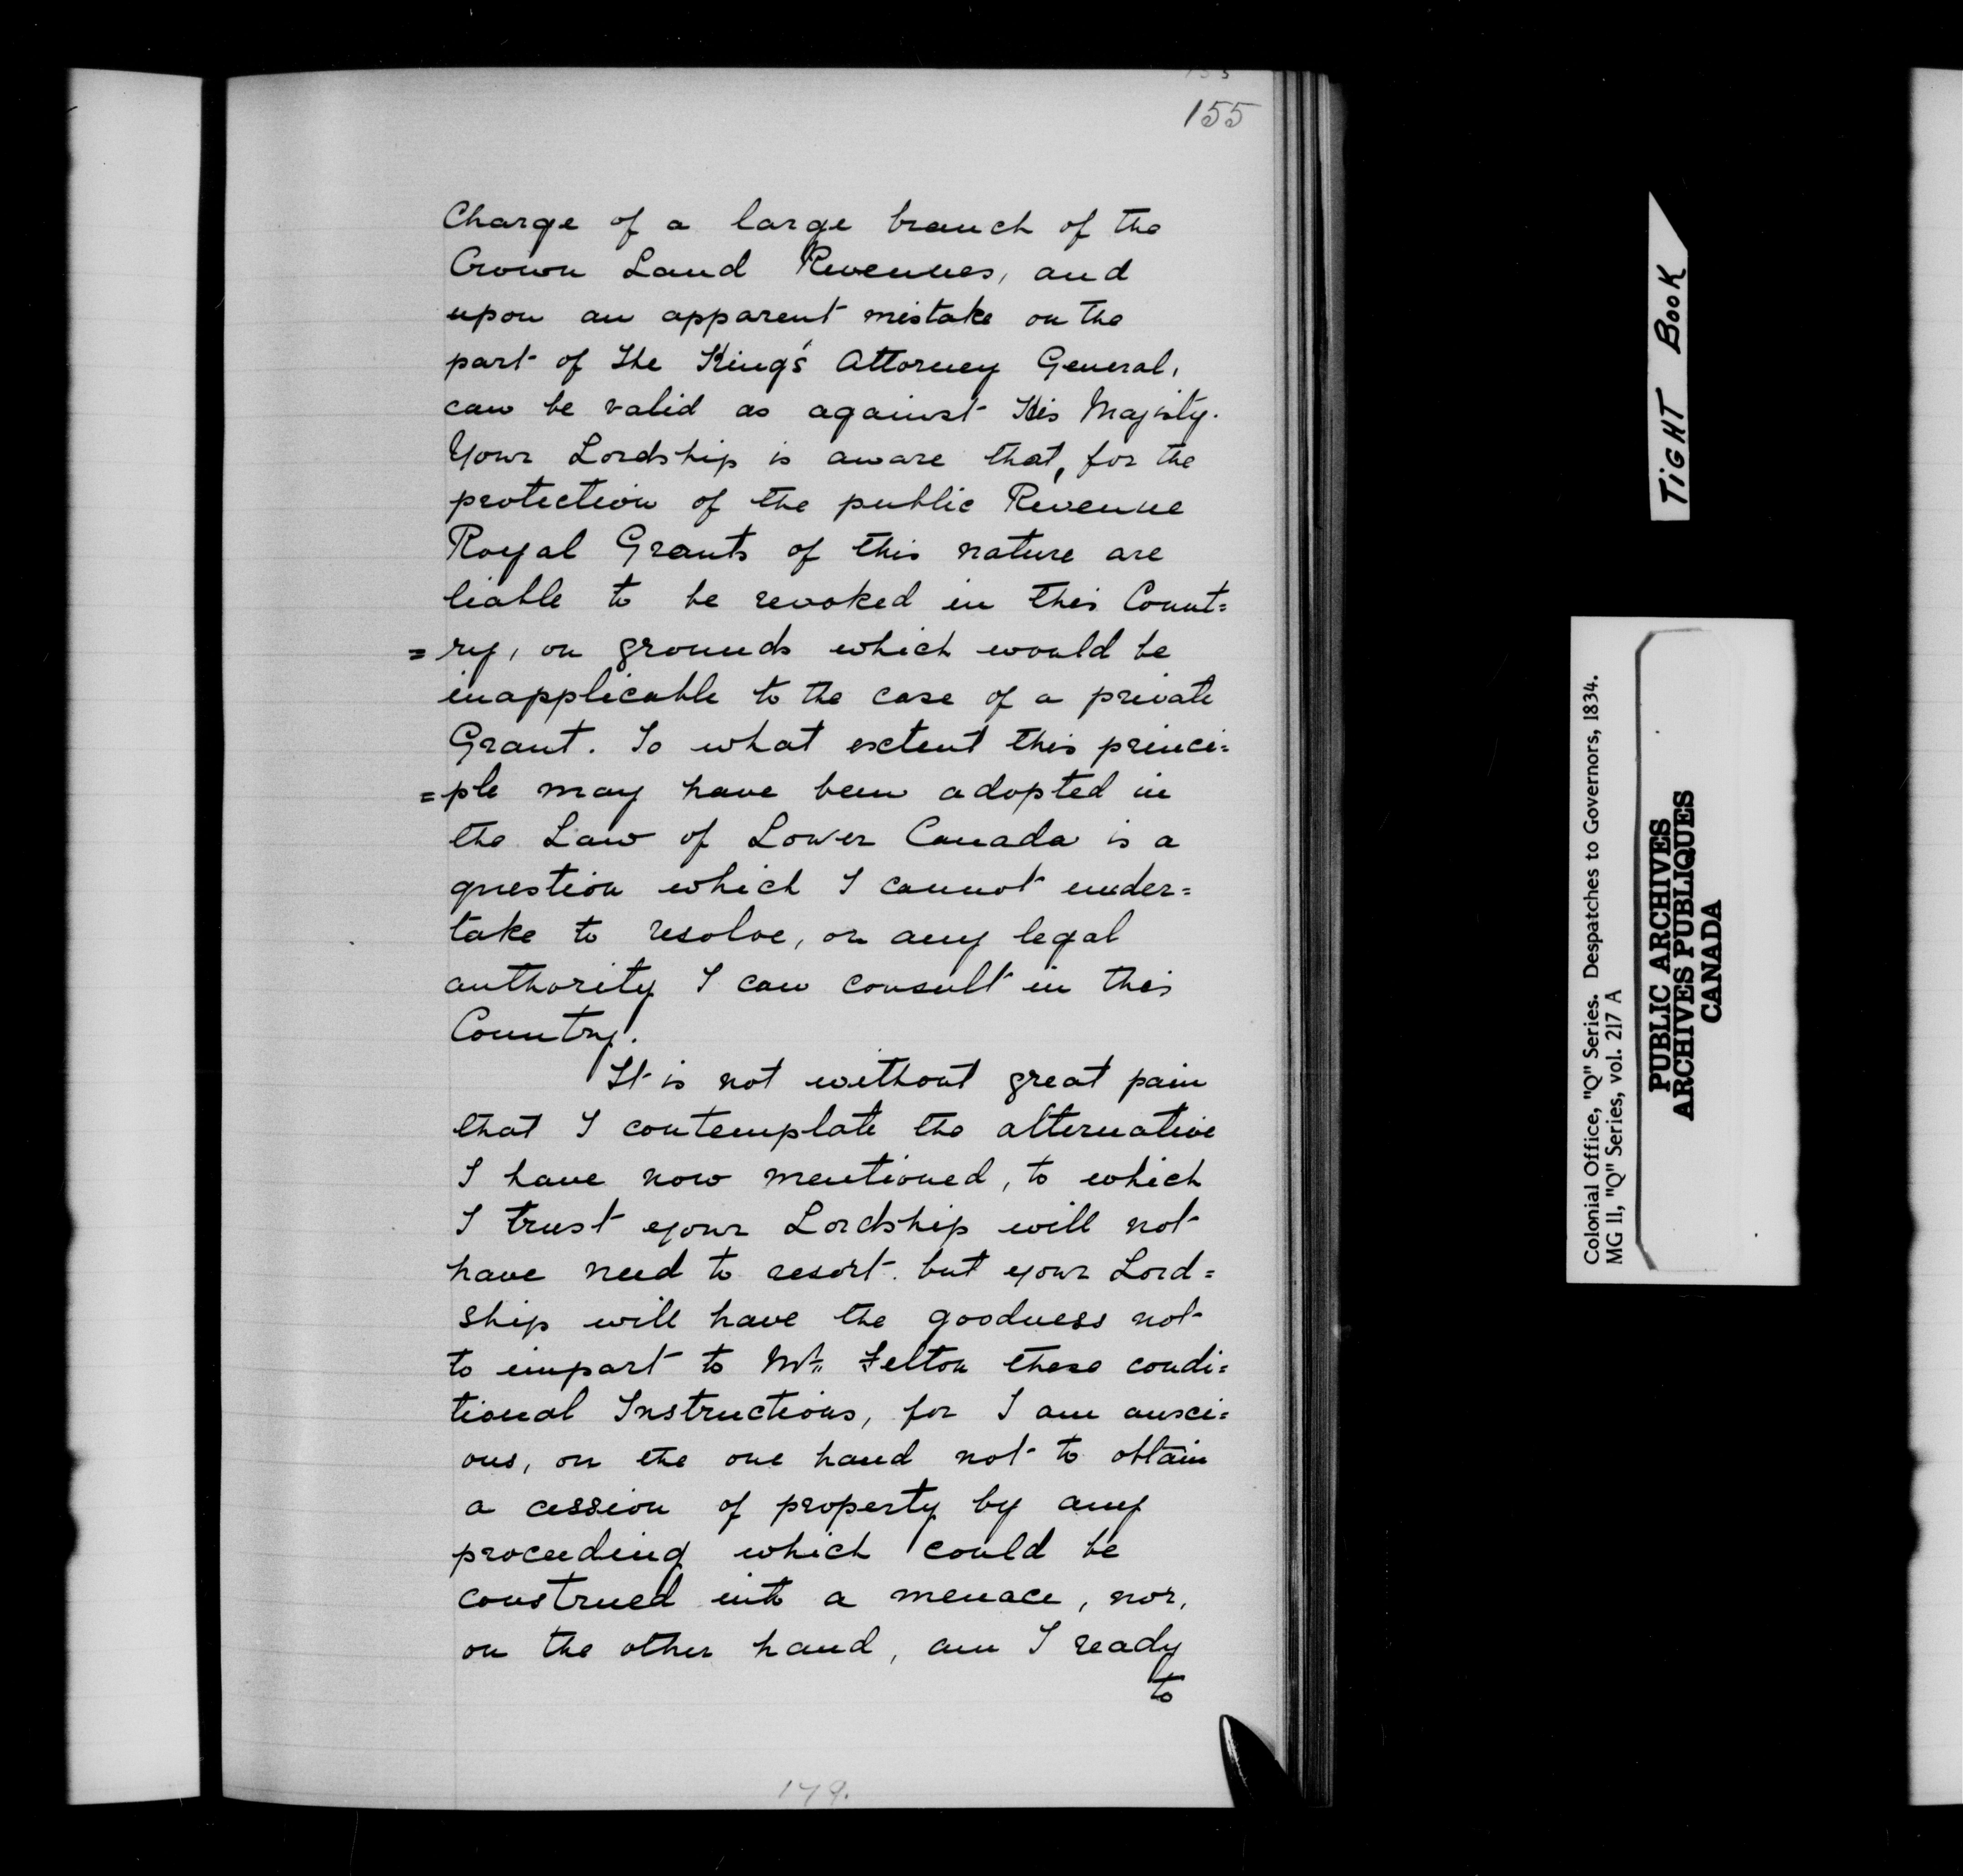 155
Charge of a large branch of the
Crown Land Revenues, and
upon an apparent mistake on the
part of the King's Attorney General,
can be valid as against His Majesty.
Your Lordship is aware that, for the
protection of the public Revenue
Royal Grants of this nature are
liable to be revoked in this Count=
=ry, on grounds which would be
inapplicable to the case of a private
Grant. To what extent this princi=
=ple may have been adopted in
the Law of Lower Canada is a
question which I cannot under=
take to resolve, or any legal
authority I can consult in this
Country.
It is not without great pain
that I contemplate the alternative
I have now mentioned, to which
I trust your Lordship will not
have need to resort. but your Lord=
ship will have the goodness not
to impart to Mr. Felton these condi=
tional Instructions, for I am anxi=
ous, on the one hand not to obtain
a cession of property by any
proceeding which could be
construed into a menace, nor,
on the other hand, am I ready
to
179.
TIGHT BOOK
Colonial Office, "Q" Series. Despatches to Governors, 1834.
MG 11, "Q" Series, vol. 217 A
PUBLIC ARCHIVES
ARCHIVES PUBLIQUES
CANADA